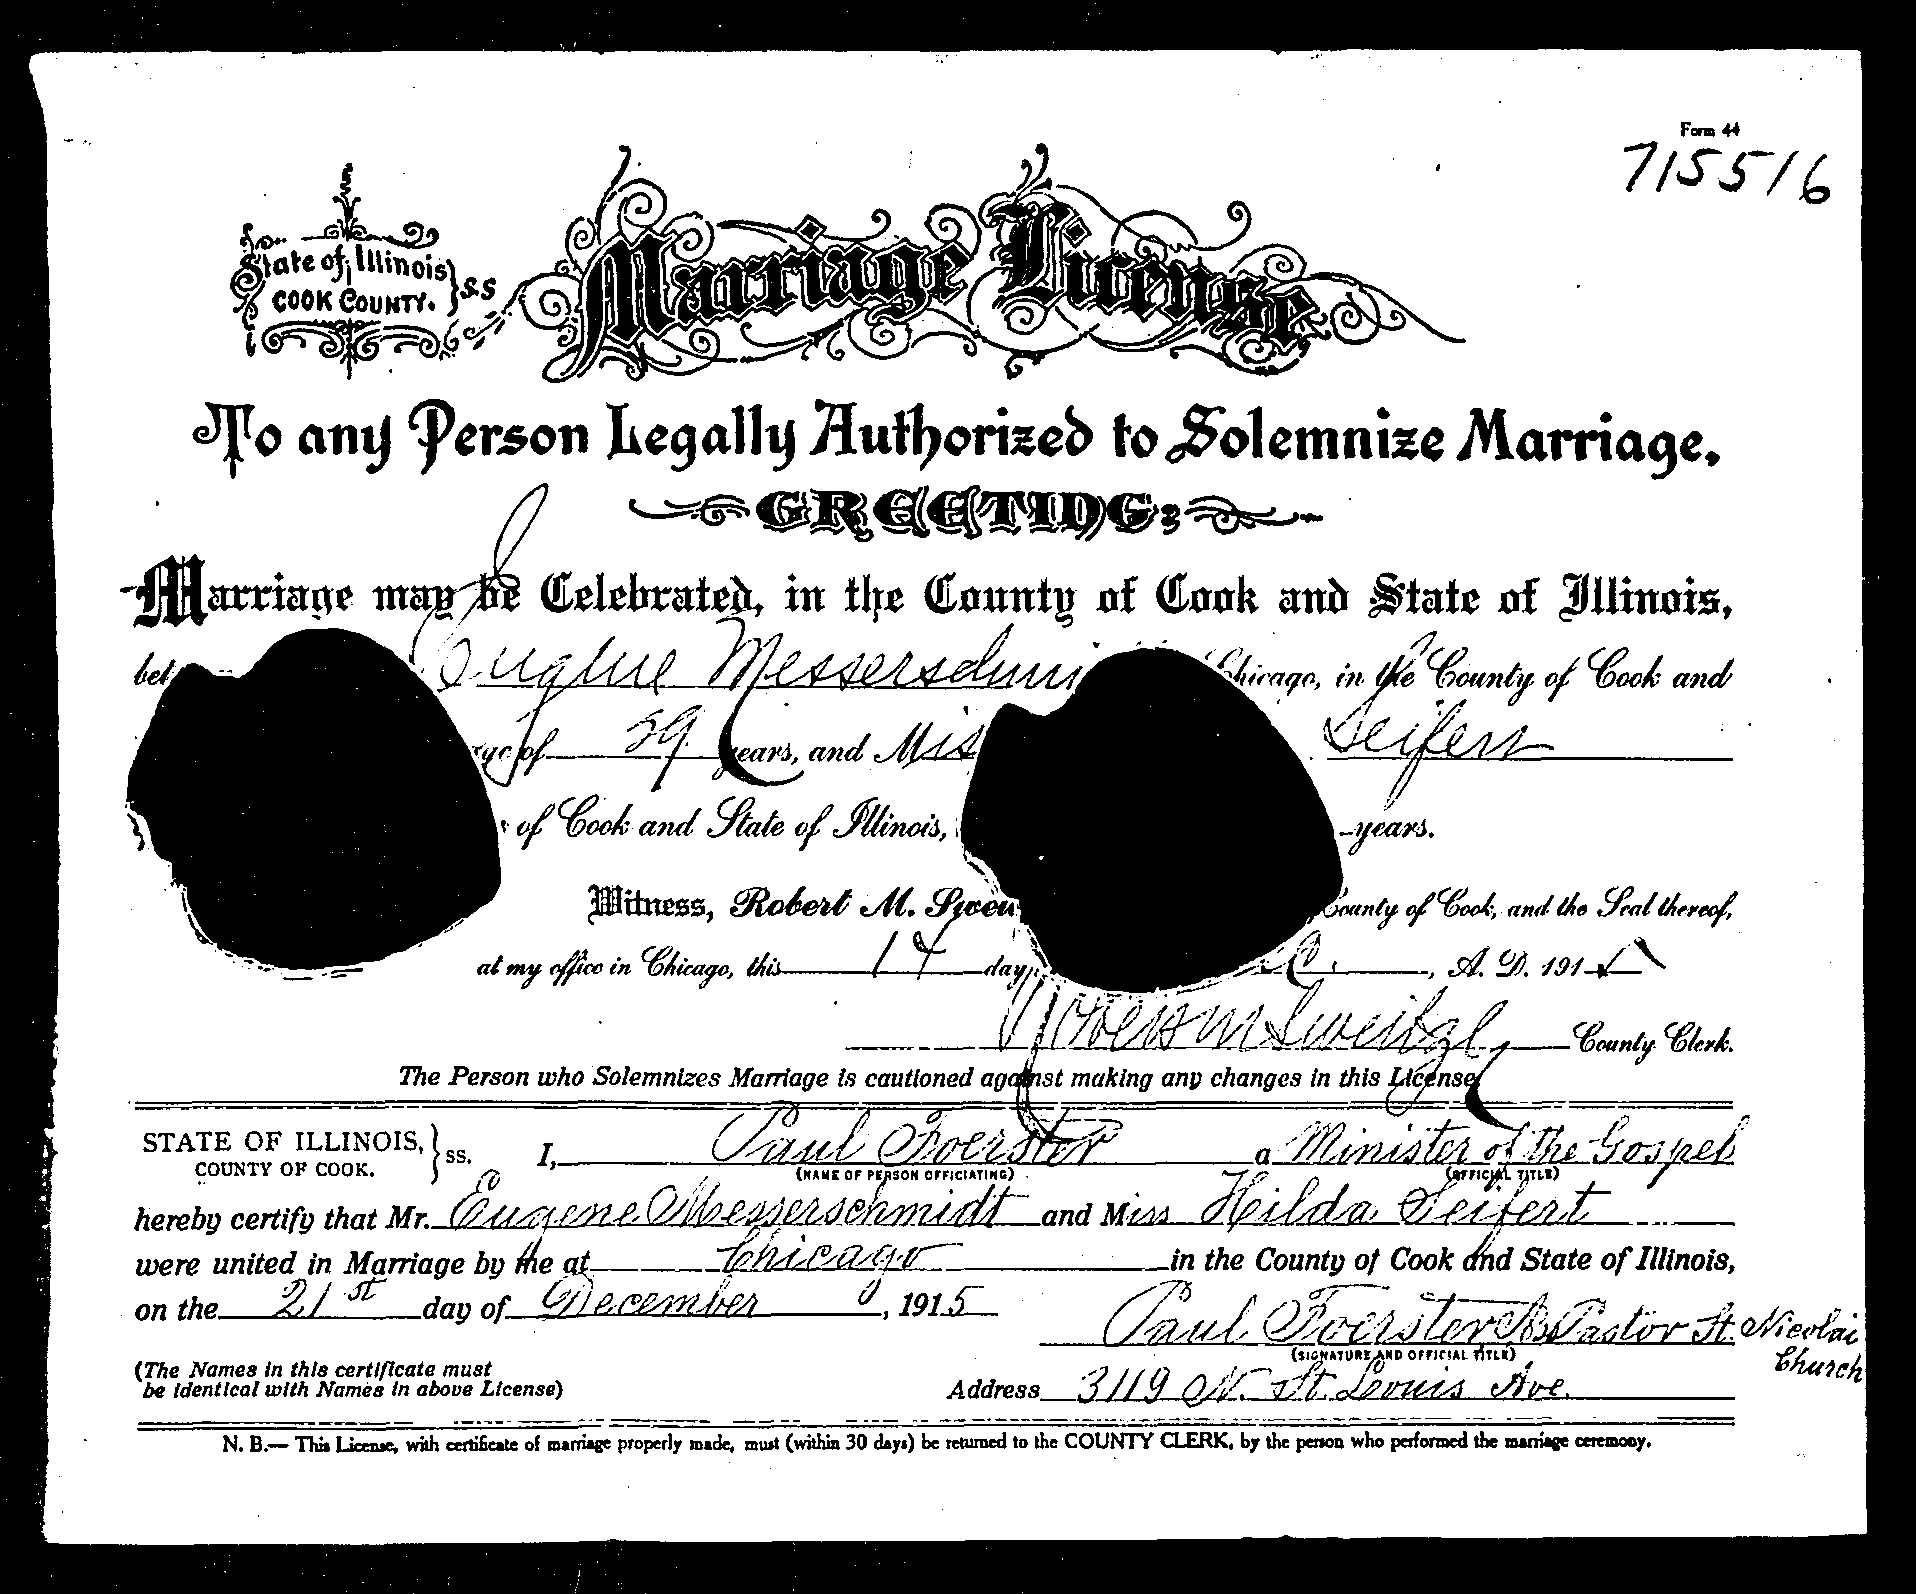 Form 44
715516
State of Illinois
COOK COUNTY. } SS
Marriage License
To any Person Legally Authorized to Solemnize Marriage,
GREETING:
Marriage may be Celebrated, in the County of Cook and State of Illinois,
Eugene Messerschmi Chicago, in the County of Cook and
of 29 years, and Miss Seifert
of Cook and State of Illinois, years.
Witness, Robert M. County of Cook, and the Seal thereof,
at my office in Chicago, this 14 day A. D. 1915
Robert M Sweitzer County Clerk.
The Person who Solemnizes Marriage is cautioned against making any changes in this License
STATE OF ILLINOIS, } ss. I, Paul Foerster a Minister of the Gospel
COUNTY OF COOK. (NAME OF PERSON OFFICIATING) (OFFICIAL TITLE)
hereby certify that Mr. Eugene Messerschmidt and Miss Hilda Seifert
were united in Marriage by me at Chicago in the County of Cook and State of Illinois,
on the 21st day of December, 1915
Paul Foerster Pastor St. Nicolai Church
(SIGNATURE AND OFFICIAL TITLE)
(The Names in this certificate must
be identical with Names in above License)
Address 3119 N. St. Louis Ave.
N. B.— This License, with certificate of marriage properly made, must (within 30 days) be returned to the COUNTY CLERK, by the person who performed the marriage ceremony.